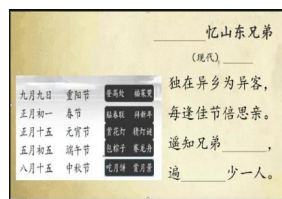 ______忆山东兄弟
(现代)______
独在异乡为异客，
每逢佳节倍思亲。
遥知兄弟______，
遍______少一人。
九月九日 重阳节 登高处 插茱萸
正月初一 春节 贴春联 拜新年
正月十五 元宵节 赏花灯 猜灯谜
五月初五 端午节 包粽子 赛龙舟
八月十五 中秋节 吃月饼 赏月景